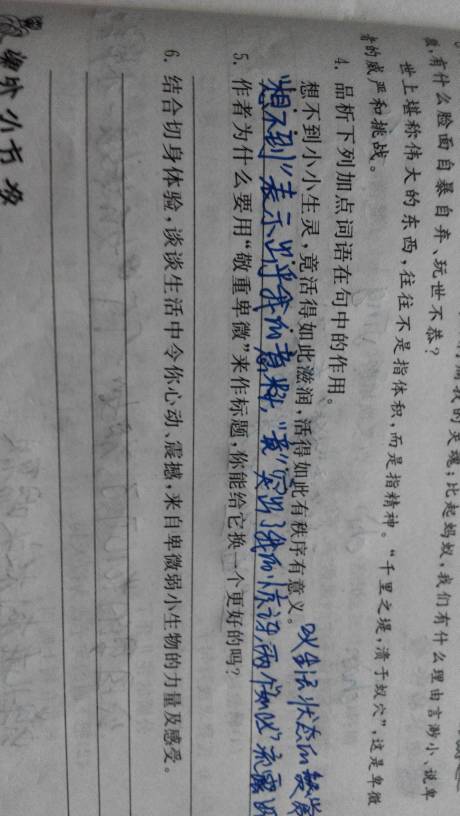 我的灵魂；比起蚂蚁，我们有什么理由言渺小、说卑
微，有什么脸面自暴自弃、玩世不恭？
世上堪称伟大的东西，往往不是指体积，而是指精神。“千里之堤，溃于蚁穴”，这是卑微
者的威严和挑战。
4. 品析下列加点词语在句中的作用。
想不到小小生灵，竟活得如此滋润，活得如此有秩序有意义。
“想不到”表示出乎我的意料，“竟”突出了我的惊讶，两个“如此”流露
对生活状态的赞赏
5. 作者为什么要用“敬重卑微”来作标题，你能给它换一个更好的吗？
6. 结合切身体验，谈谈生活中令你心动、震撼，来自卑微弱小生物的力量及感受。
课外小方块